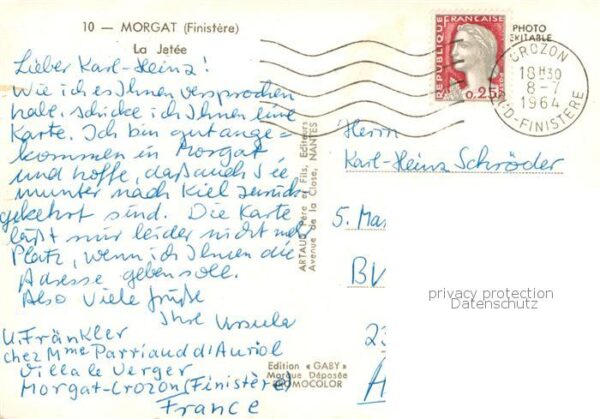 10 — MORGAT (Finistère)
La Jetée
Lieber Karl-Heinz!
Wie ich es Ihnen versprochen
habe, schicke ich Ihnen eine
Karte. Ich bin gut ange=
kommen in Morgat
und hoffe, daß auch Sie
munter nach Kiel zurück
gekehrt sind. Die Karte
läßt mir leider nicht mehr
Platz, wenn ich Ihnen die
Adresse geben soll.
Also Viele Grüße
Ihre Ursula
U. Fränkler
chez Mme Parriaud d'Auriol
Villa le Verger
Morgat-Crozon (Finistère)
France
ARTAUD Père et Fils, Editeurs
Avenue de la Close, NANTES
Edition « GABY »
Marque Déposée
REPUBLIQUE FRANÇAISE
0,25
PHOTO
VERITABLE
CROZON
18H30
8-7
1964
SUD-FINISTÈRE
Herrn
Karl-Heinz Schröder
5. Mas
BV
23
privacy protection
Datenschutz